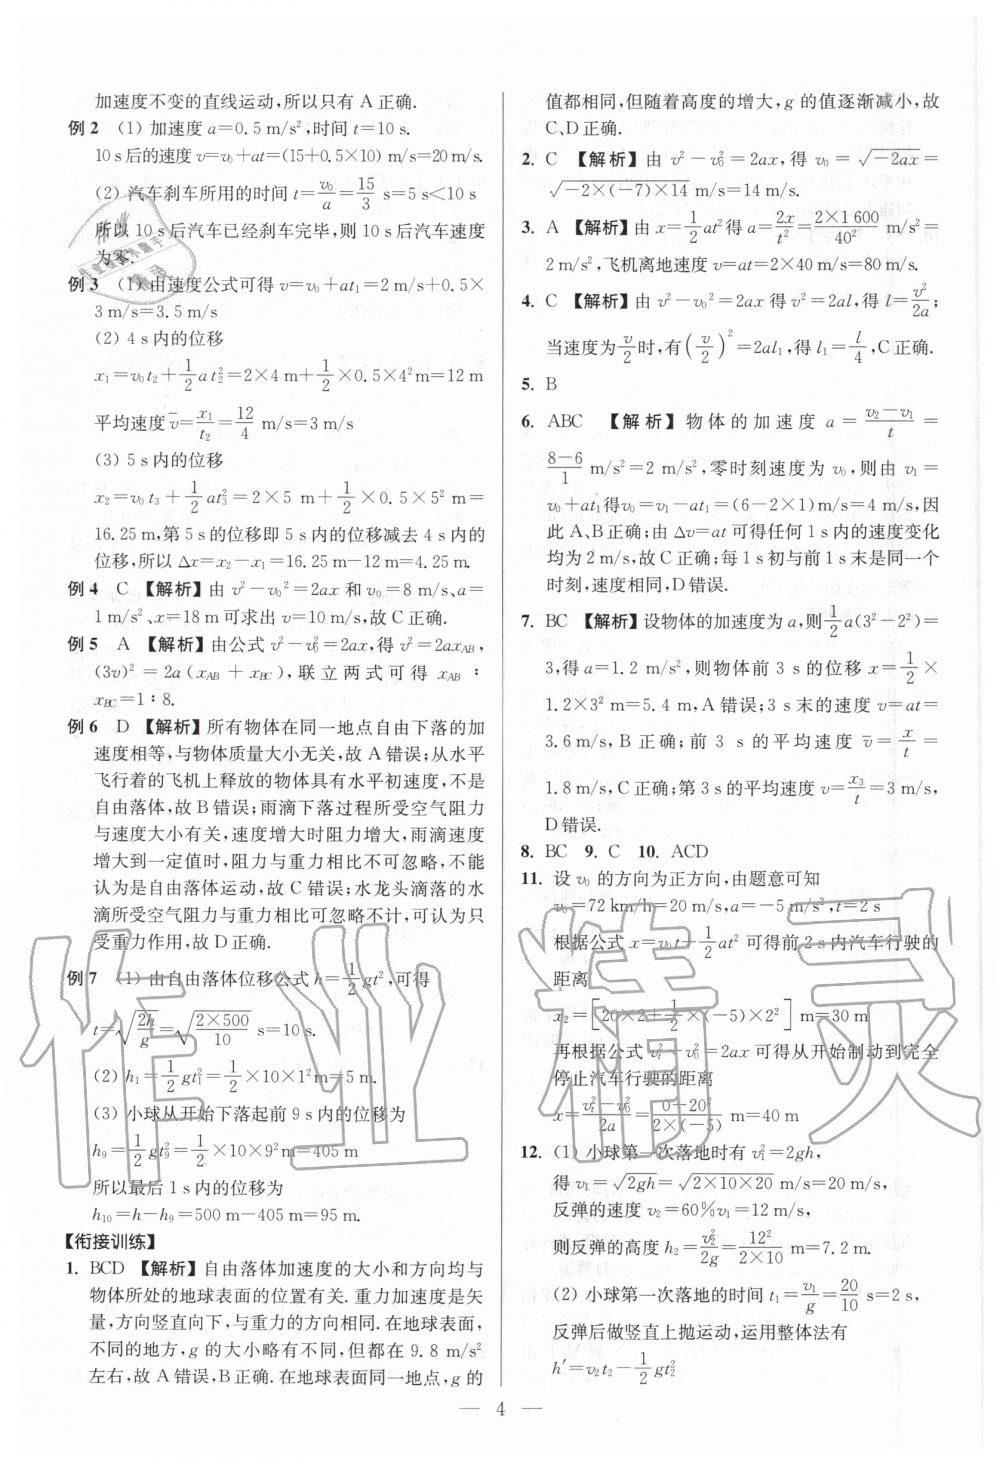 加速度不变的直线运动,所以只有 A 正确.
例 2 (1) 加速度 a=0.5 m/s²,时间 t=10 s.
10 s 后的速度 v=v₀+at=(15+0.5×10) m/s=20 m/s.
(2) 汽车刹车所用的时间 t=v₀/a=15/3 s=5 s<10 s
所以 10 s 后汽车已经刹车完毕,则 10 s 后汽车速度
为零.
例 3 (1) 由速度公式可得 v=v₀+at₁=2 m/s+0.5×
3 m/s=3.5 m/s
(2) 4 s 内的位移
x₁=v₀t₂+1/2 at₂²=2×4 m+1/2×0.5×4² m=12 m
平均速度 v̄=x₁/t₂=12/4 m/s=3 m/s
(3) 5 s 内的位移
x₂=v₀t₃+1/2 at₃²=2×5 m+1/2×0.5×5² m=
16.25 m,第 5 s 的位移即 5 s 内的位移减去 4 s 内的
位移,所以 Δx=x₂-x₁=16.25 m-12 m=4.25 m.
例 4 C 【解析】由 v²-v₀²=2ax 和 v₀=8 m/s、a=
1 m/s²、x=18 m 可求出 v=10 m/s,故 C 正确.
例 5 A 【解析】由公式 v²-v₀²=2ax,得 v²=2ax_AB,
(3v)²=2a(x_AB+x_BC),联立两式可得 x_AB:
x_BC=1:8.
例 6 D 【解析】所有物体在同一地点自由下落的加
速度相等,与物体质量大小无关,故 A 错误;从水平
飞行着的飞机上释放的物体具有水平初速度,不是
自由落体,故 B 错误;雨滴下落过程所受空气阻力
与速度大小有关,速度增大时阻力增大,雨滴速度
增大到一定值时,阻力与重力相比不可忽略,不能
认为是自由落体运动,故 C 错误;水龙头滴落的水
滴所受空气阻力与重力相比可忽略不计,可认为只
受重力作用,故 D 正确.
例 7 (1) 由自由落体位移公式 h=1/2 gt²,可得
t=√(2h/g)=√(2×500/10) s=10 s.
(2) h₁=1/2 gt₁²=1/2×10×1² m=5 m.
(3) 小球从开始下落起前 9 s 内的位移为
h₉=1/2 gt₉²=1/2×10×9² m=405 m
所以最后 1 s 内的位移为
h₁₀=h-h₉=500 m-405 m=95 m.
【衔接训练】
1. BCD 【解析】自由落体加速度的大小和方向均与
物体所处的地球表面的位置有关.重力加速度是矢
量,方向竖直向下,与重力的方向相同.在地球表面,
不同的地方,g 的大小略有不同,但都在 9.8 m/s²
左右,故 A 错误,B 正确.在地球表面同一地点,g 的
值都相同,但随着高度的增大,g 的值逐渐减小,故
C、D 正确.
2. C 【解析】由 v²-v₀²=2ax,得 v₀=√(-2ax)=
√(-2×(-7)×14) m/s=14 m/s.
3. A 【解析】由 x=1/2 at² 得 a=2x/t²=2×1 600/40² m/s²=
2 m/s²,飞机离地速度 v=at=2×40 m/s=80 m/s.
4. C 【解析】由 v²-v₀²=2ax 得 v²=2al,得 l=v²/2a;
当速度为 v/2 时,有(v/2)²=2al₁,得 l₁=l/4,C 正确.
5. B
6. ABC 【解析】物体的加速度 a=(v₂-v₁)/t=
(8-6)/1 m/s²=2 m/s²,零时刻速度为 v₀,则由 v₁=
v₀+at₁得v₀=v₁-at₁=(6-2×1)m/s=4 m/s,因
此 A、B 正确;由 Δv=at 可得任何 1 s 内的速度变化
均为 2 m/s,故 C 正确;每 1 s 初与前 1 s 末是同一个
时刻,速度相同,D 错误.
7. BC 【解析】设物体的加速度为 a,则1/2 a(3²-2²)=
3,得 a=1.2 m/s²,则物体前 3 s 的位移 x=1/2×
1.2×3² m=5.4 m,A 错误;3 s 末的速度 v=at=
3.6 m/s,B 正确;前 3 s 的平均速度 v̄=x/t=
1.8 m/s,C 正确;第 3 s 的平均速度 v=x₃/t=3 m/s,
D 错误.
8. BC 9. C 10. ACD
11. 设 v₀ 的方向为正方向,由题意可知
v₀=72 km/h=20 m/s,a=-5 m/s²,t=2 s
根据公式 x=v₀t+1/2 at² 可得前 2 s 内汽车行驶的
距离
x₂=[20×2+1/2×(-5)×2²] m=30 m
再根据公式 vₜ²-v₀²=2ax 可得从开始制动到完全
停止汽车行驶的距离
x=(vₜ²-v₀²)/2a=(0-20²)/(2×(-5)) m=40 m
12. (1) 小球第一次落地时有 v₁²=2gh,
得 v₁=√(2gh)=√(2×10×20) m/s=20 m/s,
反弹的速度 v₂=60%v₁=12 m/s,
则反弹的高度 h₂=v₂²/2g=12²/(2×10) m=7.2 m.
(2) 小球第一次落地的时间 t₁=v₁/g=20/10 s=2 s,
反弹后做竖直上抛运动,运用整体法有
h′=v₂t₂-1/2 gt₂²
— 4 —
作业精灵